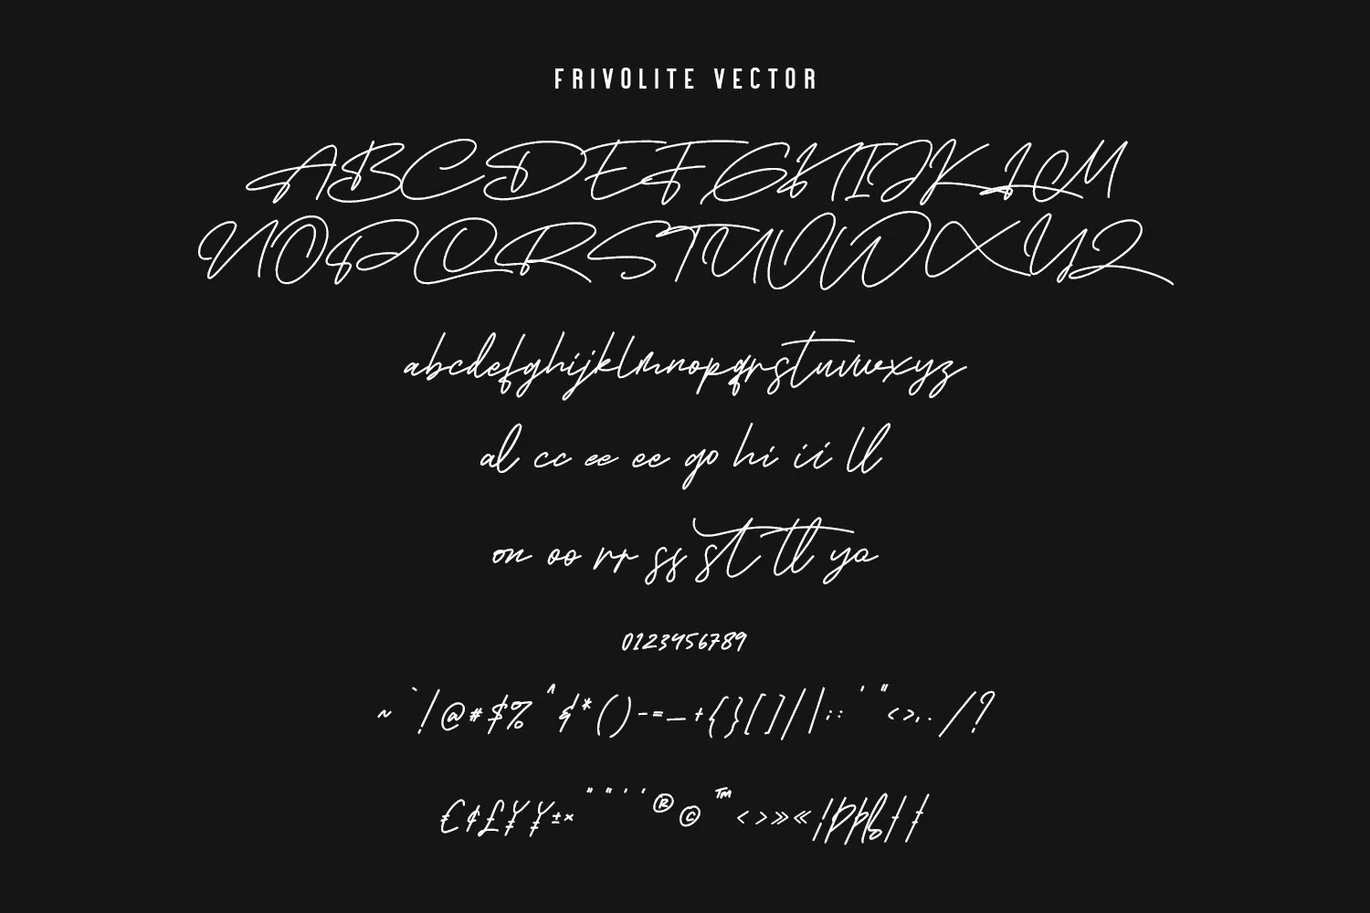 FRIVOLITE VECTOR
ABCDEFGHIJKLM
NOPQRSTUVWXYZ
abcdefghijklmnopqrstuvwxyz
al cc ee ee go hi ii ll
on oo rr ss st tl ya
0123456789
~ ` ! @ # $ % ^ & * ( ) - = _ + { } [ ] / | ; : ' " < > , . / ?
€ ¢ £ ¥ ¥ ± × " " ' ' ® © ™ < > » «